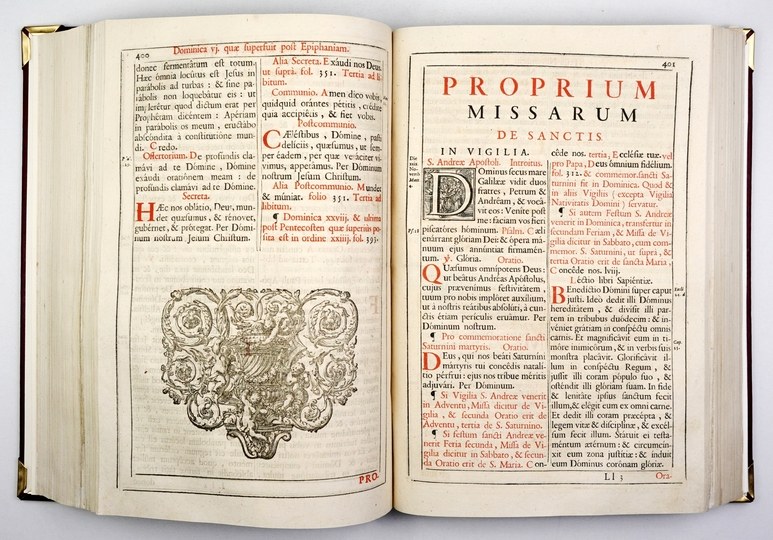 400
Dominica vj. quæ superfuit post Epiphaniam.
donec fermentátum est totum.
Hæc ómnia locútus est Jesus in
parábolis ad turbas : & sine pa-
rábolis non loquebátur eis : ut
implerétur quod dictum erat per
Prophétam dicéntem : Apériam
in parábolis os meum, eructábo
abscóndita à constitutióne mun-
di. Credo.
Offertorium. De profúndis cla-
mávi ad te Dómine , Dómine
exáudi oratiónem meam : de
profúndis clamávi ad te Dómine.
Secreta.
Hæc nos oblátio, Deus, mun-
det quæsumus, & rénovet,
gubérnet, & prótegat. Per Dómi-
num nostrum Jesum Christum.
Alia Secreta. Exáudi nos Deus.
ut suprà. fol. 351. Tertia ad li-
bitum.
Communio. Amen dico vobis,
quidquid orántes pétitis, crédite
quia accipiétis, & fiet vobis.
Postcommunio.
Cæléstibus , Dómine, pasti
delíciis, quæsumus, ut sem-
per éadem , per quæ veráciter vi-
vimus, appetámus. Per Dóminum
nostrum Jesum Christum.
Alia Postcommunio. Mundet
& múniat. folio 351. Tertia ad
libitum.
¶ Dominica xxviij. & ultima
post Pentecosten quæ superiùs po-
sita est in ordine xxiiij. fol. 393.
PRO.
401
PROPRIUM
MISSARUM
DE SANCTIS
IN VIGILIA.
S. Andreæ Apostoli. Introitus.
Dominus secus mare
Galilææ vidit duos
fratres , Petrum &
Andréam , & vocá-
vit eos : Veníte post
me : fáciam vos fíeri
piscatóres hóminum. Psalm. Cæli
enárrant glóriam Dei: & ópera má-
nuum ejus annúntiat firmamén-
tum. ℣. Glória. Oratio.
Quæsumus omnípotens Deus :
ut beátus Andréas Apóstolus,
cujus prævenímus festivitátem ,
tuum pro nobis implóret auxílium,
ut à nostris reátibus absolúti, à cun-
ctis étiam perículis eruámur. Per
Dóminum nostrum.
¶ Pro commemoratione sancti
Saturnini martyris. Oratio.
Deus, qui nos beáti Saturníni
mártyris tui concédis natalí-
tio pérfrui : ejus nos tríbue méritis
adjuvári. Per Dóminum.
¶ Si Vigilia S. Andreæ venerit
in Adventu, Missa dicitur de Vi-
gilia , & secunda Oratio erit de
Adventu , tertia de S. Saturnino.
¶ Si festum sancti Andreæ ve-
nerit Feria secunda, Missa de Vi-
gilia dicitur in Sabbato , & secun-
da Oratio erit de S. Maria. Con-
céde nos. tertia, Ecclésiæ tuæ. vel
pro Papa, Deus ómnium fidélium.
fol. 312. & commemor. sancti Sa-
turnini fit in Dominica. Quod &
in aliis Vigiliis ( excepta Vigilia
Nativitatis Domini ) servatur.
¶ Si autem Festum S. Andreæ
venerit in Dominica, transfertur in
secundam Feriam , & Missa de Vi-
gilia dicitur in Sabbato, cum com-
memor. S. Saturnini, ut supra , &
tertia Oratio erit de sancta Maria,
Concéde nos. lviij.
Léctio libri Sapiéntiæ.
Benedíctio Dómini super caput
justi. Ideò dedit illi Dóminus
hereditátem , & divísit illi par-
tem in tríbubus duódecim : & in-
vénit grátiam in conspéctu omnis
carnis. Et magnificávit eum in ti-
móre inimicórum , & in verbis suis
monstra placávit. Glorificávit il-
lum in conspéctu Regum , &
jussit illi coram pópulo suo , &
osténdit illi glóriam suam. In fide
& lenitáte ipsíus sanctum fecit
illum, & elégit eum ex omni carne.
Et dedit illi coram præcépta , &
legem vitæ & disciplínæ , & excél-
sum fecit illum. Státuit ei testa-
méntum ætérnum : & circumcín-
xit eum zona justítiæ : & índuit
eum Dóminus corónam glóriæ.
Ll 3
Ora-